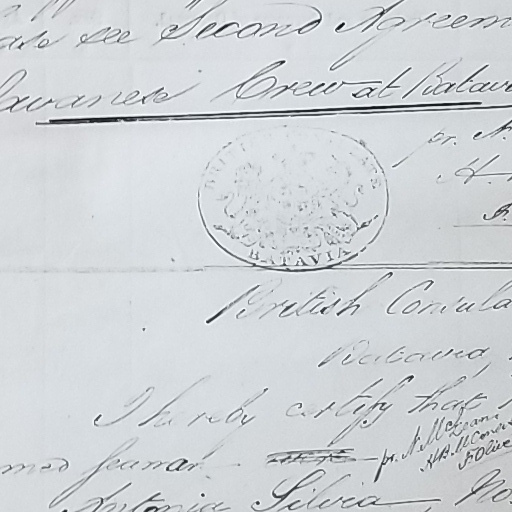 see Second Agreem
Javanese Crew at Batavi
pr. N.
H.
BATAVIA
British Consula
Batavia,
I hereby certify that
med seaman
pr. N. McLean
H.B.M. Consu
F. Olive
Antonia Silvia, No.